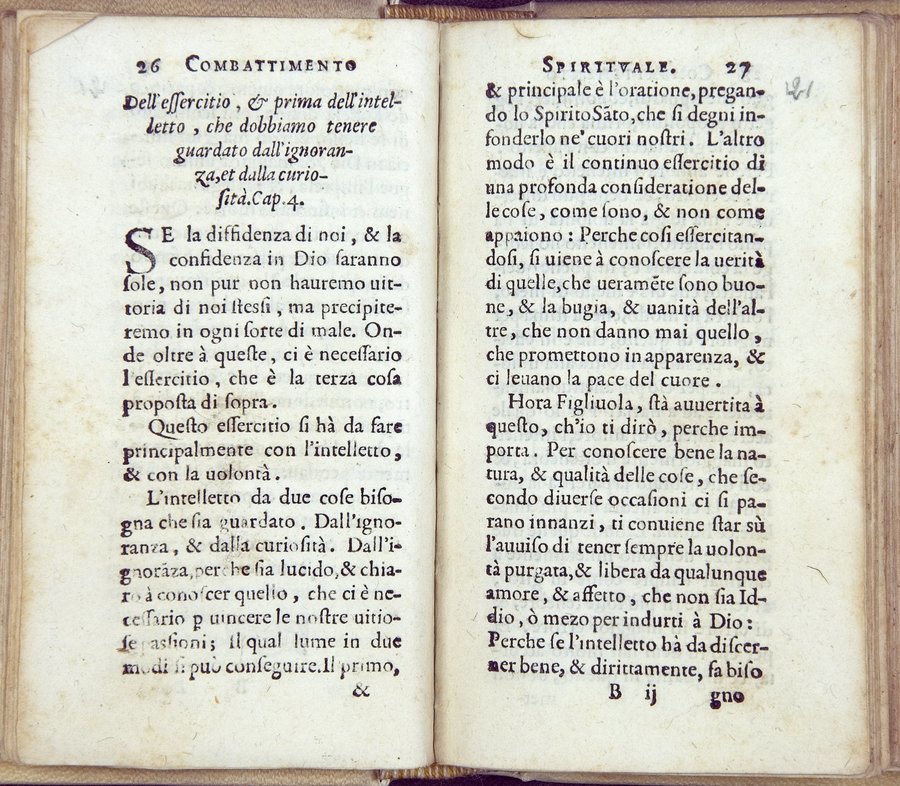 26 COMBATTIMENTO
Dell'eſſercitio, & prima dell'intel-
letto, che dobbiamo tenere
guardato dall'ignoran-
za,et dalla curio-
ſità.Cap.4.
SE la diffidenza di noi, & la
confidenza in Dio ſaranno
ſole, non pur non hauremo uit-
toria di noi ſteſsi, ma precipite-
remo in ogni ſorte di male. On-
de oltre à queſte, ci è neceſſario
l'eſſercitio, che è la terza coſa
propoſta di ſopra.
Queſto eſſercitio ſi hà da fare
principalmente con l'intelletto,
& con la uolontà.
L'intelletto da due coſe biſo-
gna che ſia guardato. Dall'igno-
ranza, & dalla curioſità. Dall'i-
gnorãza,perche ſia lucido,& chia-
ro à conoſcer quello, che ci è ne-
ceſſario p uincere le noſtre uitio-
ſe paſsioni; il qual lume in due
modi ſi può conſeguire.Il primo,
&
SPIRITVALE. 27
& principale è l'oratione,pregan-
do lo Spirito Sãto,che ſi degni in-
fonderlo ne' cuori noſtri. L'altro
modo è il continuo eſſercitio di
una profonda conſideratione del-
le coſe, come ſono, & non come
appaiono: Perche coſi eſſercitan-
doſi, ſi uiene à conoſcere la uerità
di quelle,che ueramẽte ſono buo-
ne, & la bugia, & uanità dell'al-
tre, che non danno mai quello,
che promettono in apparenza, &
ci leuano la pace del cuore.
Hora Figliuola, ſtà auuertita à
queſto, ch'io ti dirò, perche im-
porta. Per conoſcere bene la na-
tura, & qualità delle coſe, che ſe-
condo diuerſe occaſioni ci ſi pa-
rano innanzi, ti conuiene ſtar sù
l'auuiſo di tener ſempre la uolon-
tà purgata,& libera da qualunque
amore, & affetto, che non ſia Id-
dio, ò mezo per indurti à Dio:
Perche ſe l'intelletto hà da diſcer-
ner bene, & dirittamente, fa biſo
B ij gno
21